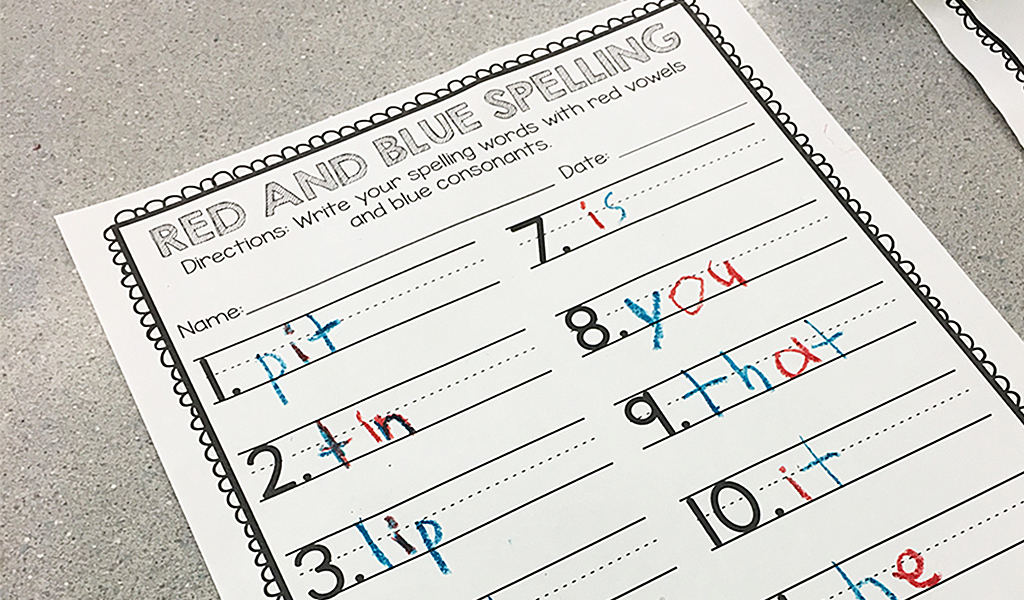 RED AND BLUE SPELLING
Directions: Write your spelling words with red vowels
and blue consonants.
Name:
Date:
1. pit
2. tin
3. lip
7. is
8. you
9. that
10. it
he